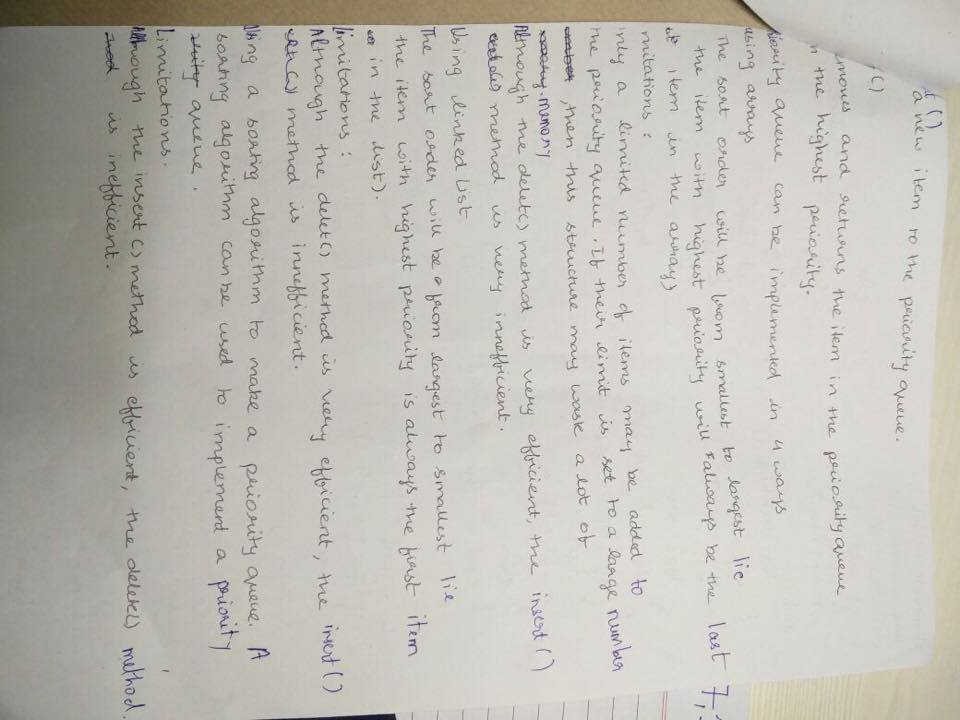 t ()
a new item to the priority queue.
()
emoves and returns the item in the priority queue
n the highest periority.
riority queue can be implemented in 4 ways
using arrays
The sort order will be from smallest to largest lie
the item with highest priority will always be the last 7,
item in the array)
mitations :
nly a limited number of items may be added to
the periority queue. If their limit is set to a large number
, then this structure may wask a lot of
memory
Although the delet() method is very efficient, the insert ()
method us very innefficient.
Using linked List
The sort order will be from largest to smallest lie
the item with highest periority is always the first item
in the list).
Limitations :
Although the delet() method is very efficient, the insert ()
method is innefficient.
Using a sorting algorithm to make a periority queue. A
sorting algorithm can be used to implement a priority
queue.
Limitations.
Although the insert () method is efficient, the delete() method.
is inefficient.